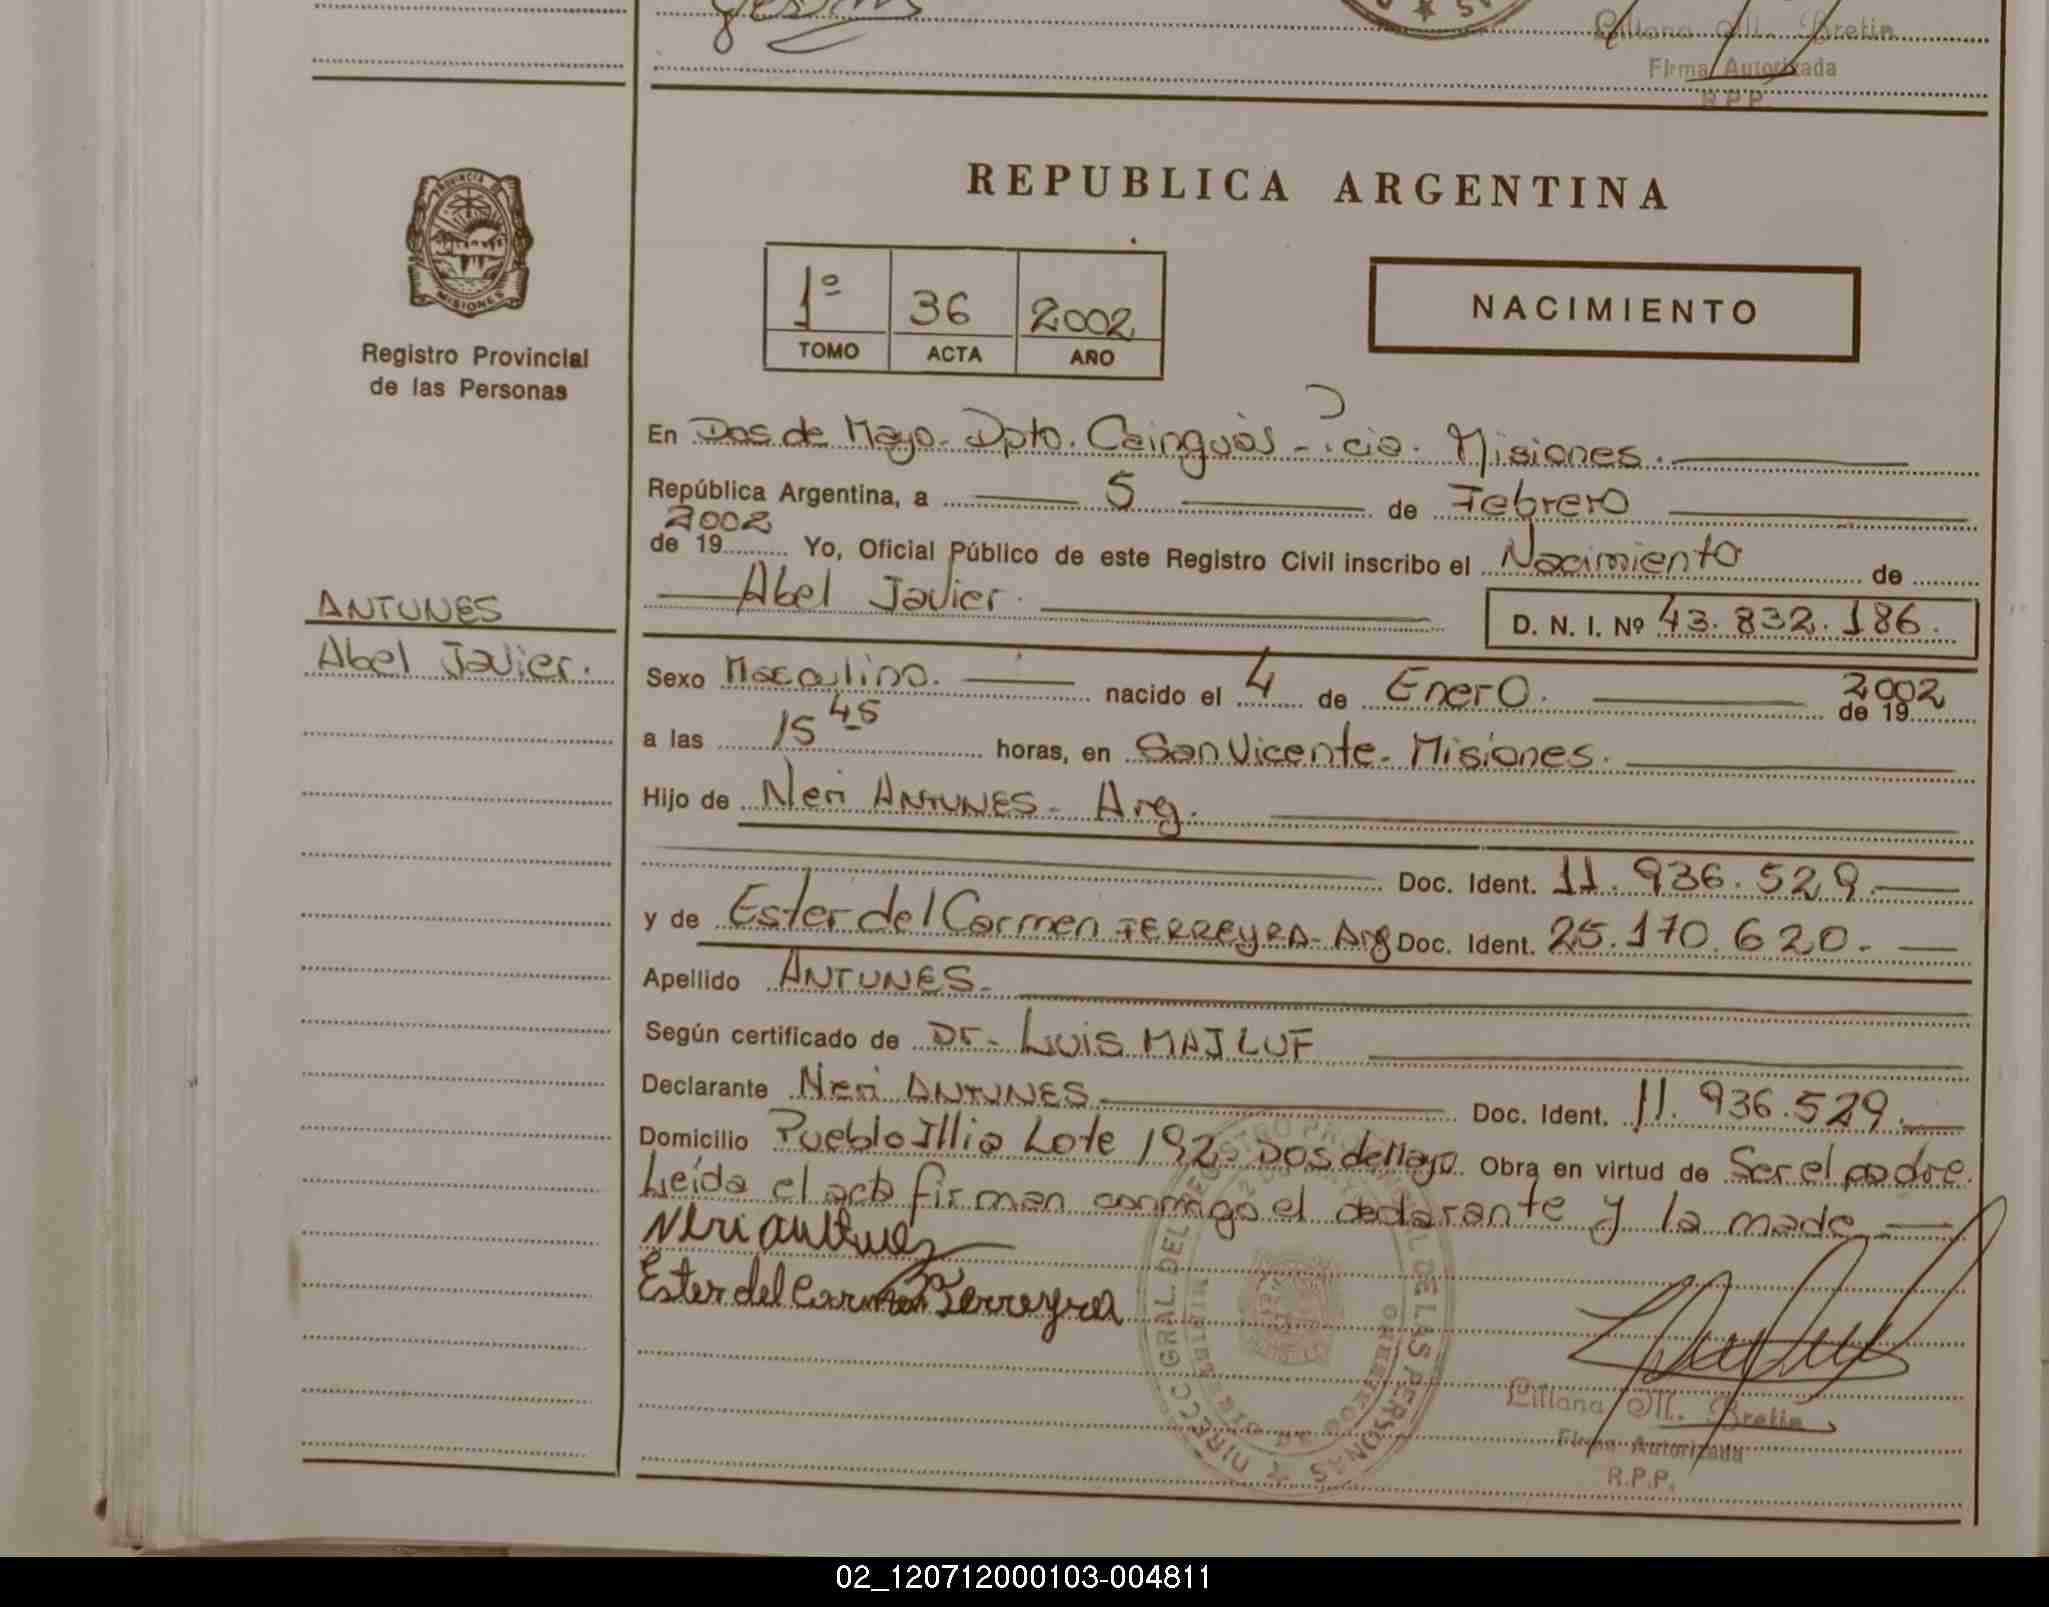 Liliana M. Bretin
Firma Autorizada
R.P.P.
REPUBLICA ARGENTINA
PROVINCIA DE
MISIONES
Registro Provincial
de las Personas
1º 36 2002
TOMO ACTA AÑO
NACIMIENTO
En Dos de Mayo - Dpto. Cainguás - Pcia. Misiones.
República Argentina, a 5 de Febrero
2002
de 19 Yo, Oficial Público de este Registro Civil inscribo el Nacimiento de
Abel Javier. D. N. I. Nº 43.832.186.
ANTUNES
Abel Javier.
Sexo Masculino. nacido el 4 de Enero. 2002 de 19
a las 15 45 horas, en San Vicente - Misiones.
Hijo de Neri ANTUNES - Arg.
Doc. Ident. 11.936.529.
y de Ester del Carmen FERREYRA - Arg Doc. Ident. 25.170.620.
Apellido ANTUNES -
Según certificado de Dr. Luis MAJLUF
Declarante Neri ANTUNES Doc. Ident. 11.936.529.
Domicilio Pueblo Illia Lote 192 Dos de Mayo Obra en virtud de Ser el padre.
Leída el acta firman conmigo el declarante y la made
Neri antunes
Ester del Carmen Ferreyra
DIRECC. GRAL. DEL REGISTRO PROVINCIAL DE LAS PERSONAS
Liliana M. Bretin
Firma Autorizada
R.P.P.
02_120712000103-004811